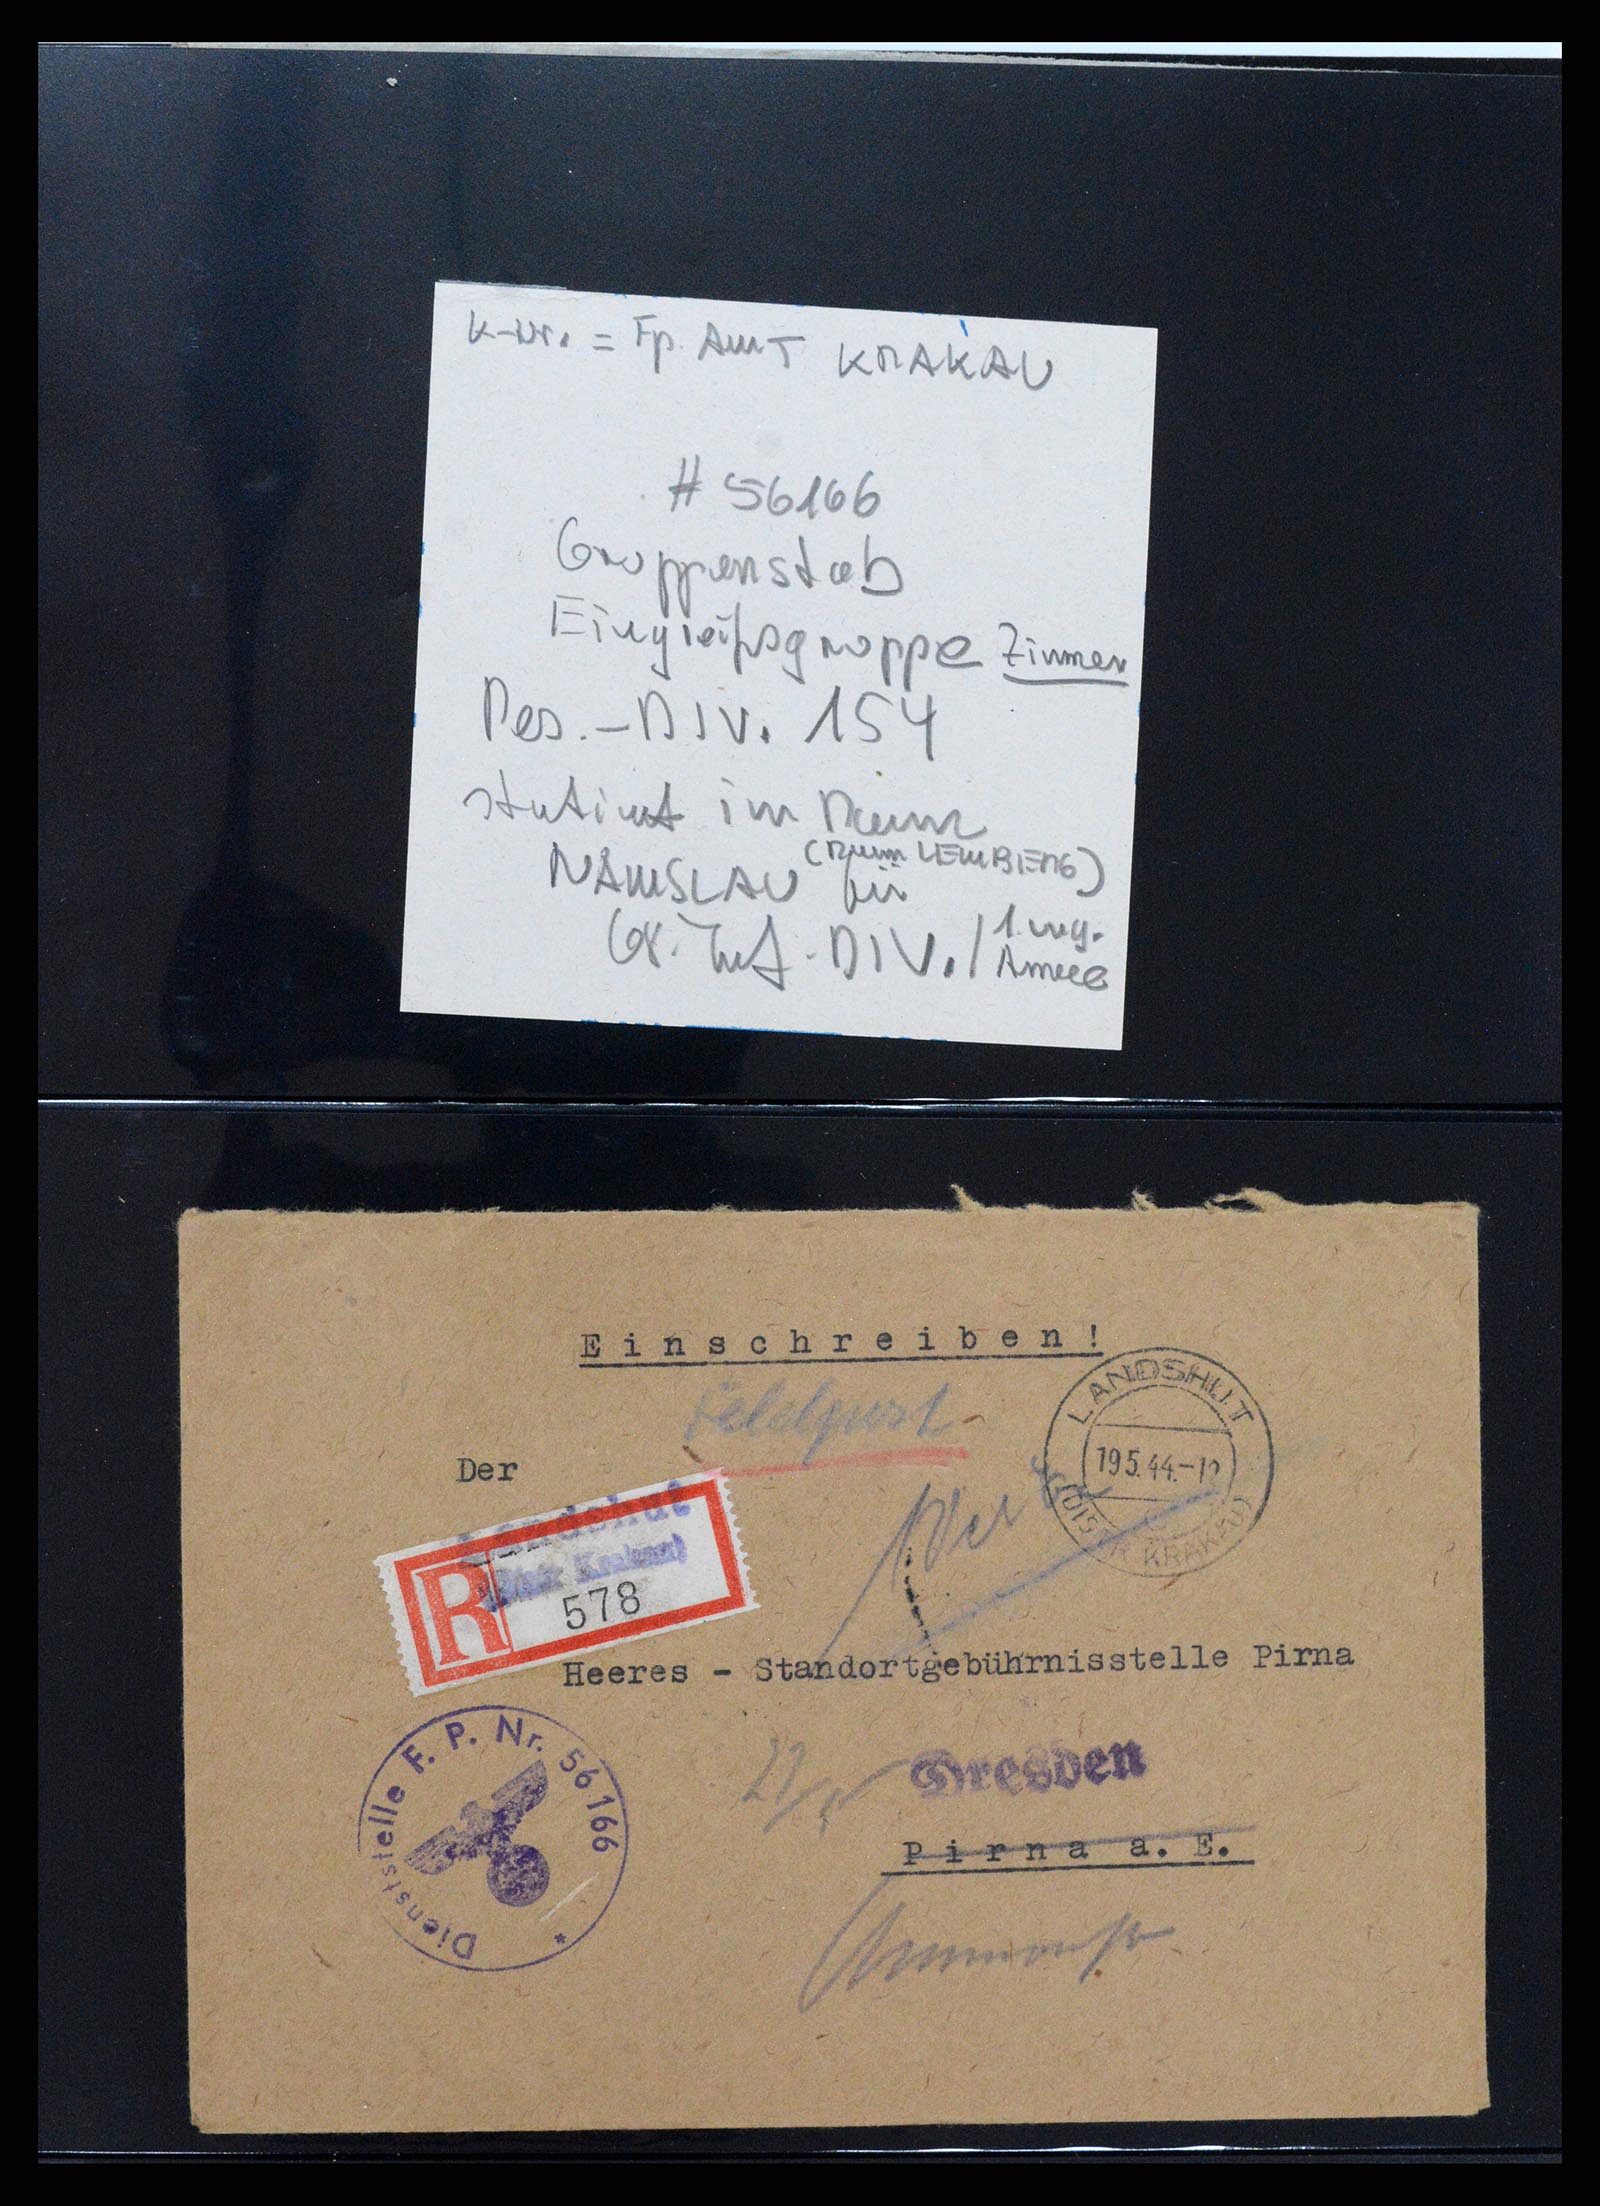 K-Nr. = Fp. Amt KRAKAU
# 56166
Gruppenstab
Eingreifsgruppe Zimmer
Res.-DIV. 154
im Raum
(Raum LEMBERG)
NAMSLAU für
Gr. Inf.-DIV./ 1. ung.
Armee
Einschreiben!
Feldpost
LANDSHUT
19.5.44.-12
(DISTR KRAKAU)
Der
Landshut
(Distr Krakau)
R 578
Heeres - Standortgebührnisstelle Pirna
Dienststelle F. P. Nr. 56166 *
Dresden
Pirna a. E.